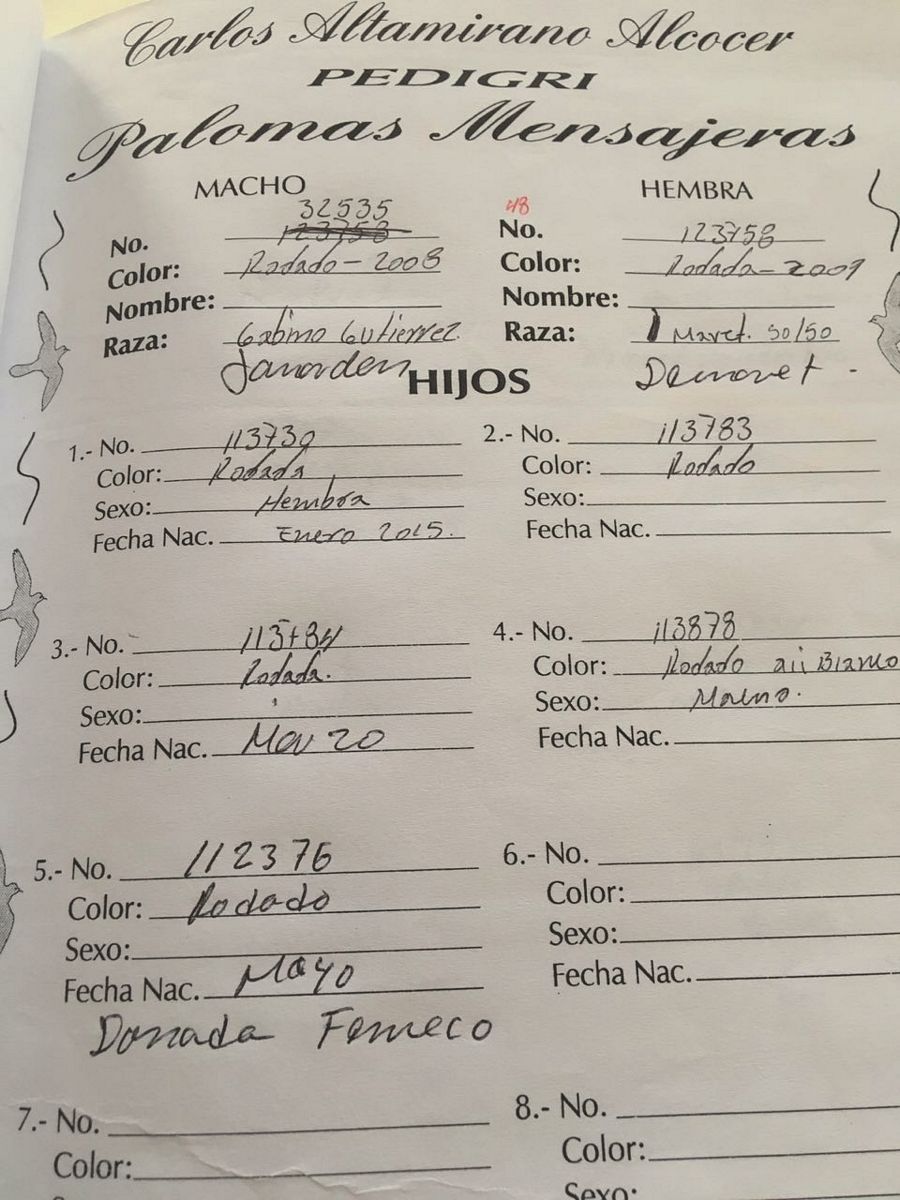 Carlos Altamirano Alcocer
PEDIGRI
Palomas Mensajeras
MACHO
32535
No. 123758
Color: Rodado - 2008
Nombre:
Raza: Gabino Gutierrez.
Janarden
HEMBRA
48
No. 123758
Color: Rodada - 2009
Nombre:
Raza: Marct. 50/50
Denovet -
HIJOS
1.- No. 113739
Color: Rodada
Sexo: Hembra
Fecha Nac. Enero 2015.
2.- No. 113783
Color: Rodado
Sexo:
Fecha Nac.
3.- No. 113784
Color: Rodada.
Sexo:
Fecha Nac. Marzo
4.- No. 113878
Color: Rodado Blanco
Sexo: Macho.
Fecha Nac.
5.- No. 112376
Color: Rodado
Sexo:
Fecha Nac. Mayo
Donada Femeco
6.- No.
Color:
Sexo:
Fecha Nac.
7.- No.
Color:
8.- No.
Color:
Sexo: